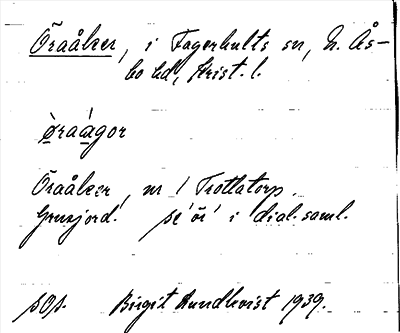 Öraåker, i Fagerhults sn, N. Ås-
bo hd, Krist. l.
òraágor
Öraåker, nr 1 Trottatorp.
Grusjord. se 'ör' i dial. saml.
sOp. Birgit Rundkvist 1939.